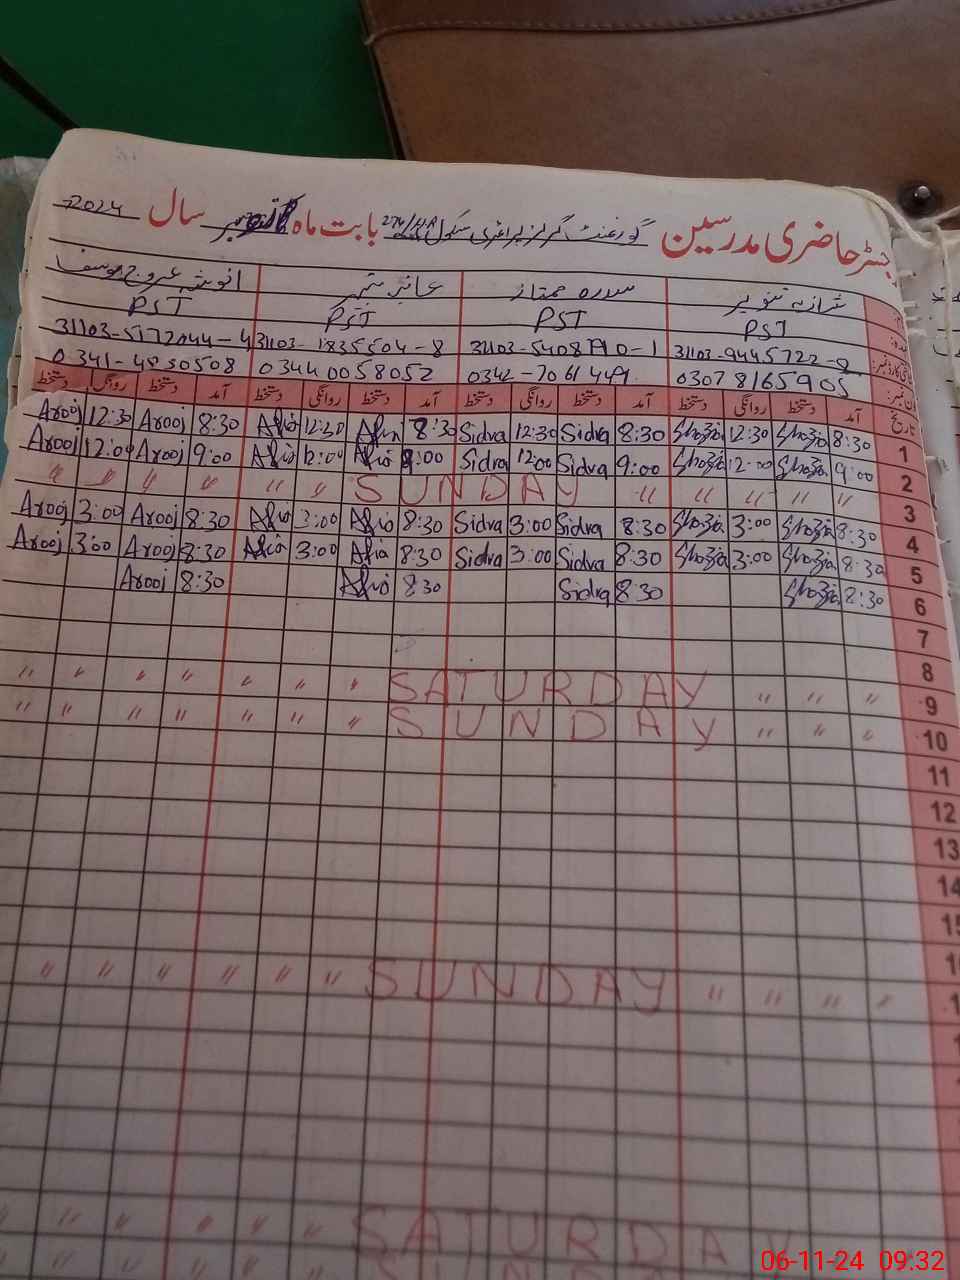 رجسٹر حاضری مدرسین گورنمنٹ گرلز پرائمری سکول بابت ماہ نومبر سال 2024
شازیہ تنویر سدرہ ممتاز
PST PST PST PST
31103-5408790-1
03078165905 0342-7061449 03440058052 0341-4830508
تاریخ آمد دستخط روانگی دستخط آمد دستخط روانگی دستخط آمد دستخط روانگی دستخط آمد دستخط روانگی دستخط
1 8:30 Shazia 12:30 Shazia 8:30 Sidra 12:30 Sidra 8:30 Afia 12:30 Afia 8:30 Arooj 12:30 Arooj
2 9:00 Shazia 12:00 Shazia 9:00 Sidra 12:00 Sidra 9:00 Afia 12:00 Afia 9:00 Arooj 12:00 Arooj
3 SUNDAY
4 8:30 Shazia 3:00 Shazia 8:30 Sidra 3:00 Sidra 8:30 Afia 3:00 Afia 8:30 Arooj 3:00 Arooj
5 8:30 Shazia 3:00 Shazia 8:30 Sidra 3:00 Sidra 8:30 Afia 3:00 Afia 8:30 Arooj 3:00 Arooj
6 8:30 Shazia 8:30 Sidra 8:30 Afia 8:30 Arooj
7
8
9 SATURDAY
10 SUNDAY
11
12
13
14
SUNDAY
SATURDAY
SUNDAY
06-11-24 09:32